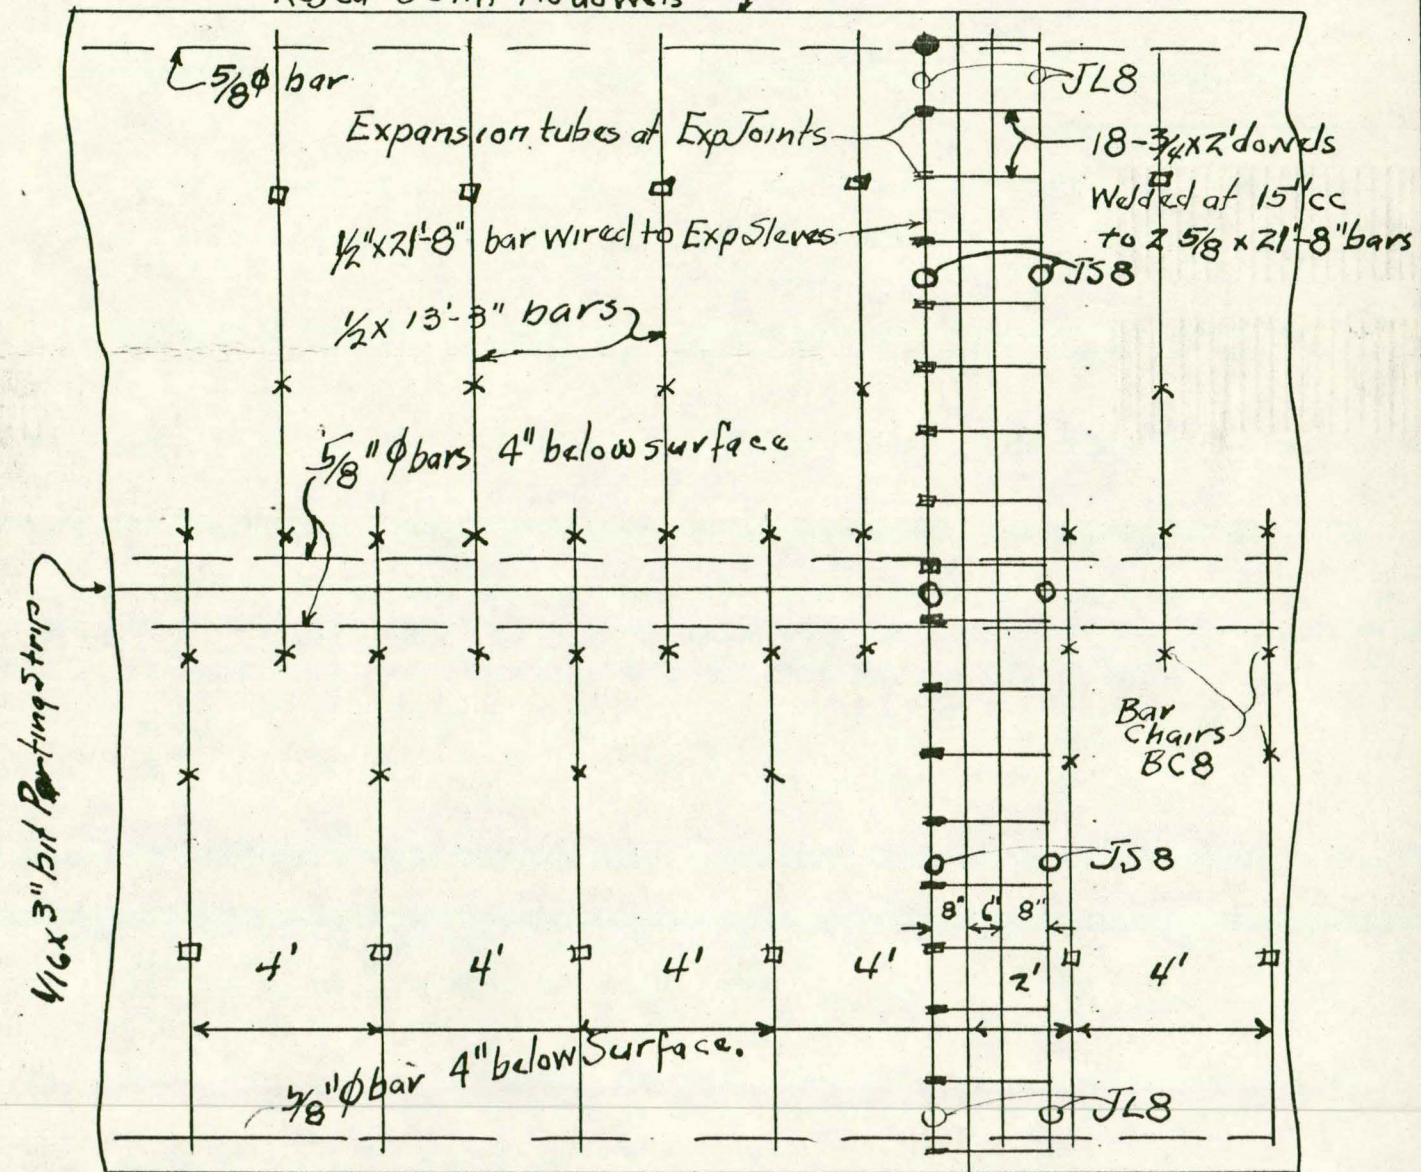 5/8ɸ bar
JL8
Expansion tubes at Exp Joints
18-3/4x2' dowels
Welded at 15"cc
to 2 5/8 x 21'-8" bars
1/2"x21'-8" bar wired to Exp Sleves
JS8
1/2 x 13'-3" bars
5/8"ɸ bars 4" below surface
1/16x3" bit Parting Strip
Bar
Chairs
BC8
JS8
8" 6" 8"
4' 4' 4' 4' 2' 4'
4" below Surface.
5/8"ɸ bar
JL8